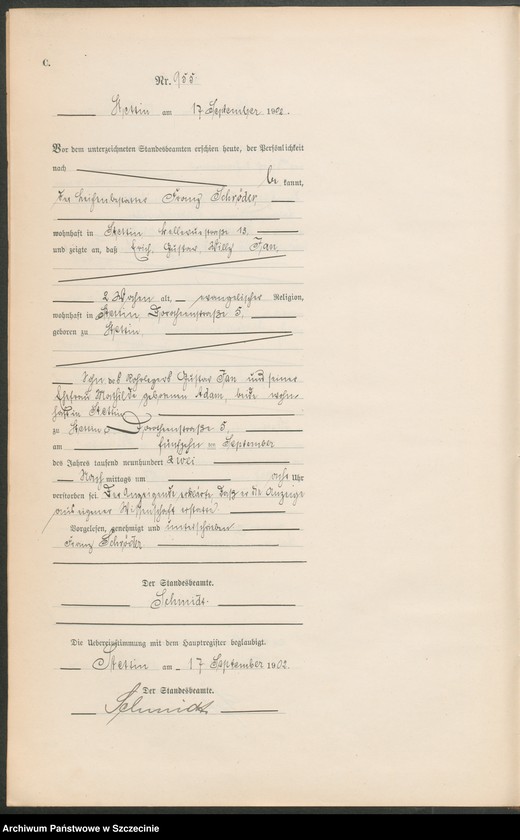 C.
Nr. 955
Stettin am 17 September 1902.
Vor dem unterzeichneten Standesbeamten erschien heute, der Persönlichkeit
nach be kannt,
der Leichenbestatter Franz Schröder,
wohnhaft in Stettin Bellevuestraße 13.
und zeigte an, daß Erich, Gustav, Willy Jan,
2 Wochen alt, evangelischer Religion,
wohnhaft in Stettin, Dorotheenstraße 5,
geboren zu Stettin,
Sohn des Rohrlegers Gustav Jan und seiner
Ehefrau Mathilde geborenen Adam, beide wohn-
haft in Stettin
zu Stettin, Dorotheenstraße 5,
am fünfzehn ten September
des Jahres tausend neunhundert zwei
Nach mittags um acht Uhr
verstorben sei. Der Anzeigende erklärte, daß er die Anzeige
aus eigener Wissenschaft erstatte.
Vorgelesen, genehmigt und unterschrieben
Franz Schröder
Der Standesbeamte.
Schmidt.
Die Uebereinstimmung mit dem Hauptregister beglaubigt.
Stettin am 17 September 1902.
Der Standesbeamte.
Schmidt
Archiwum Państwowe w Szczecinie